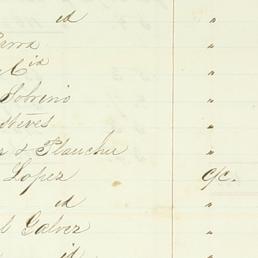 id "
Parra "
Cia "
Sobrino "
Esteves "
& Plaucher "
Lopez c/c.
id "
Galvez "
id "